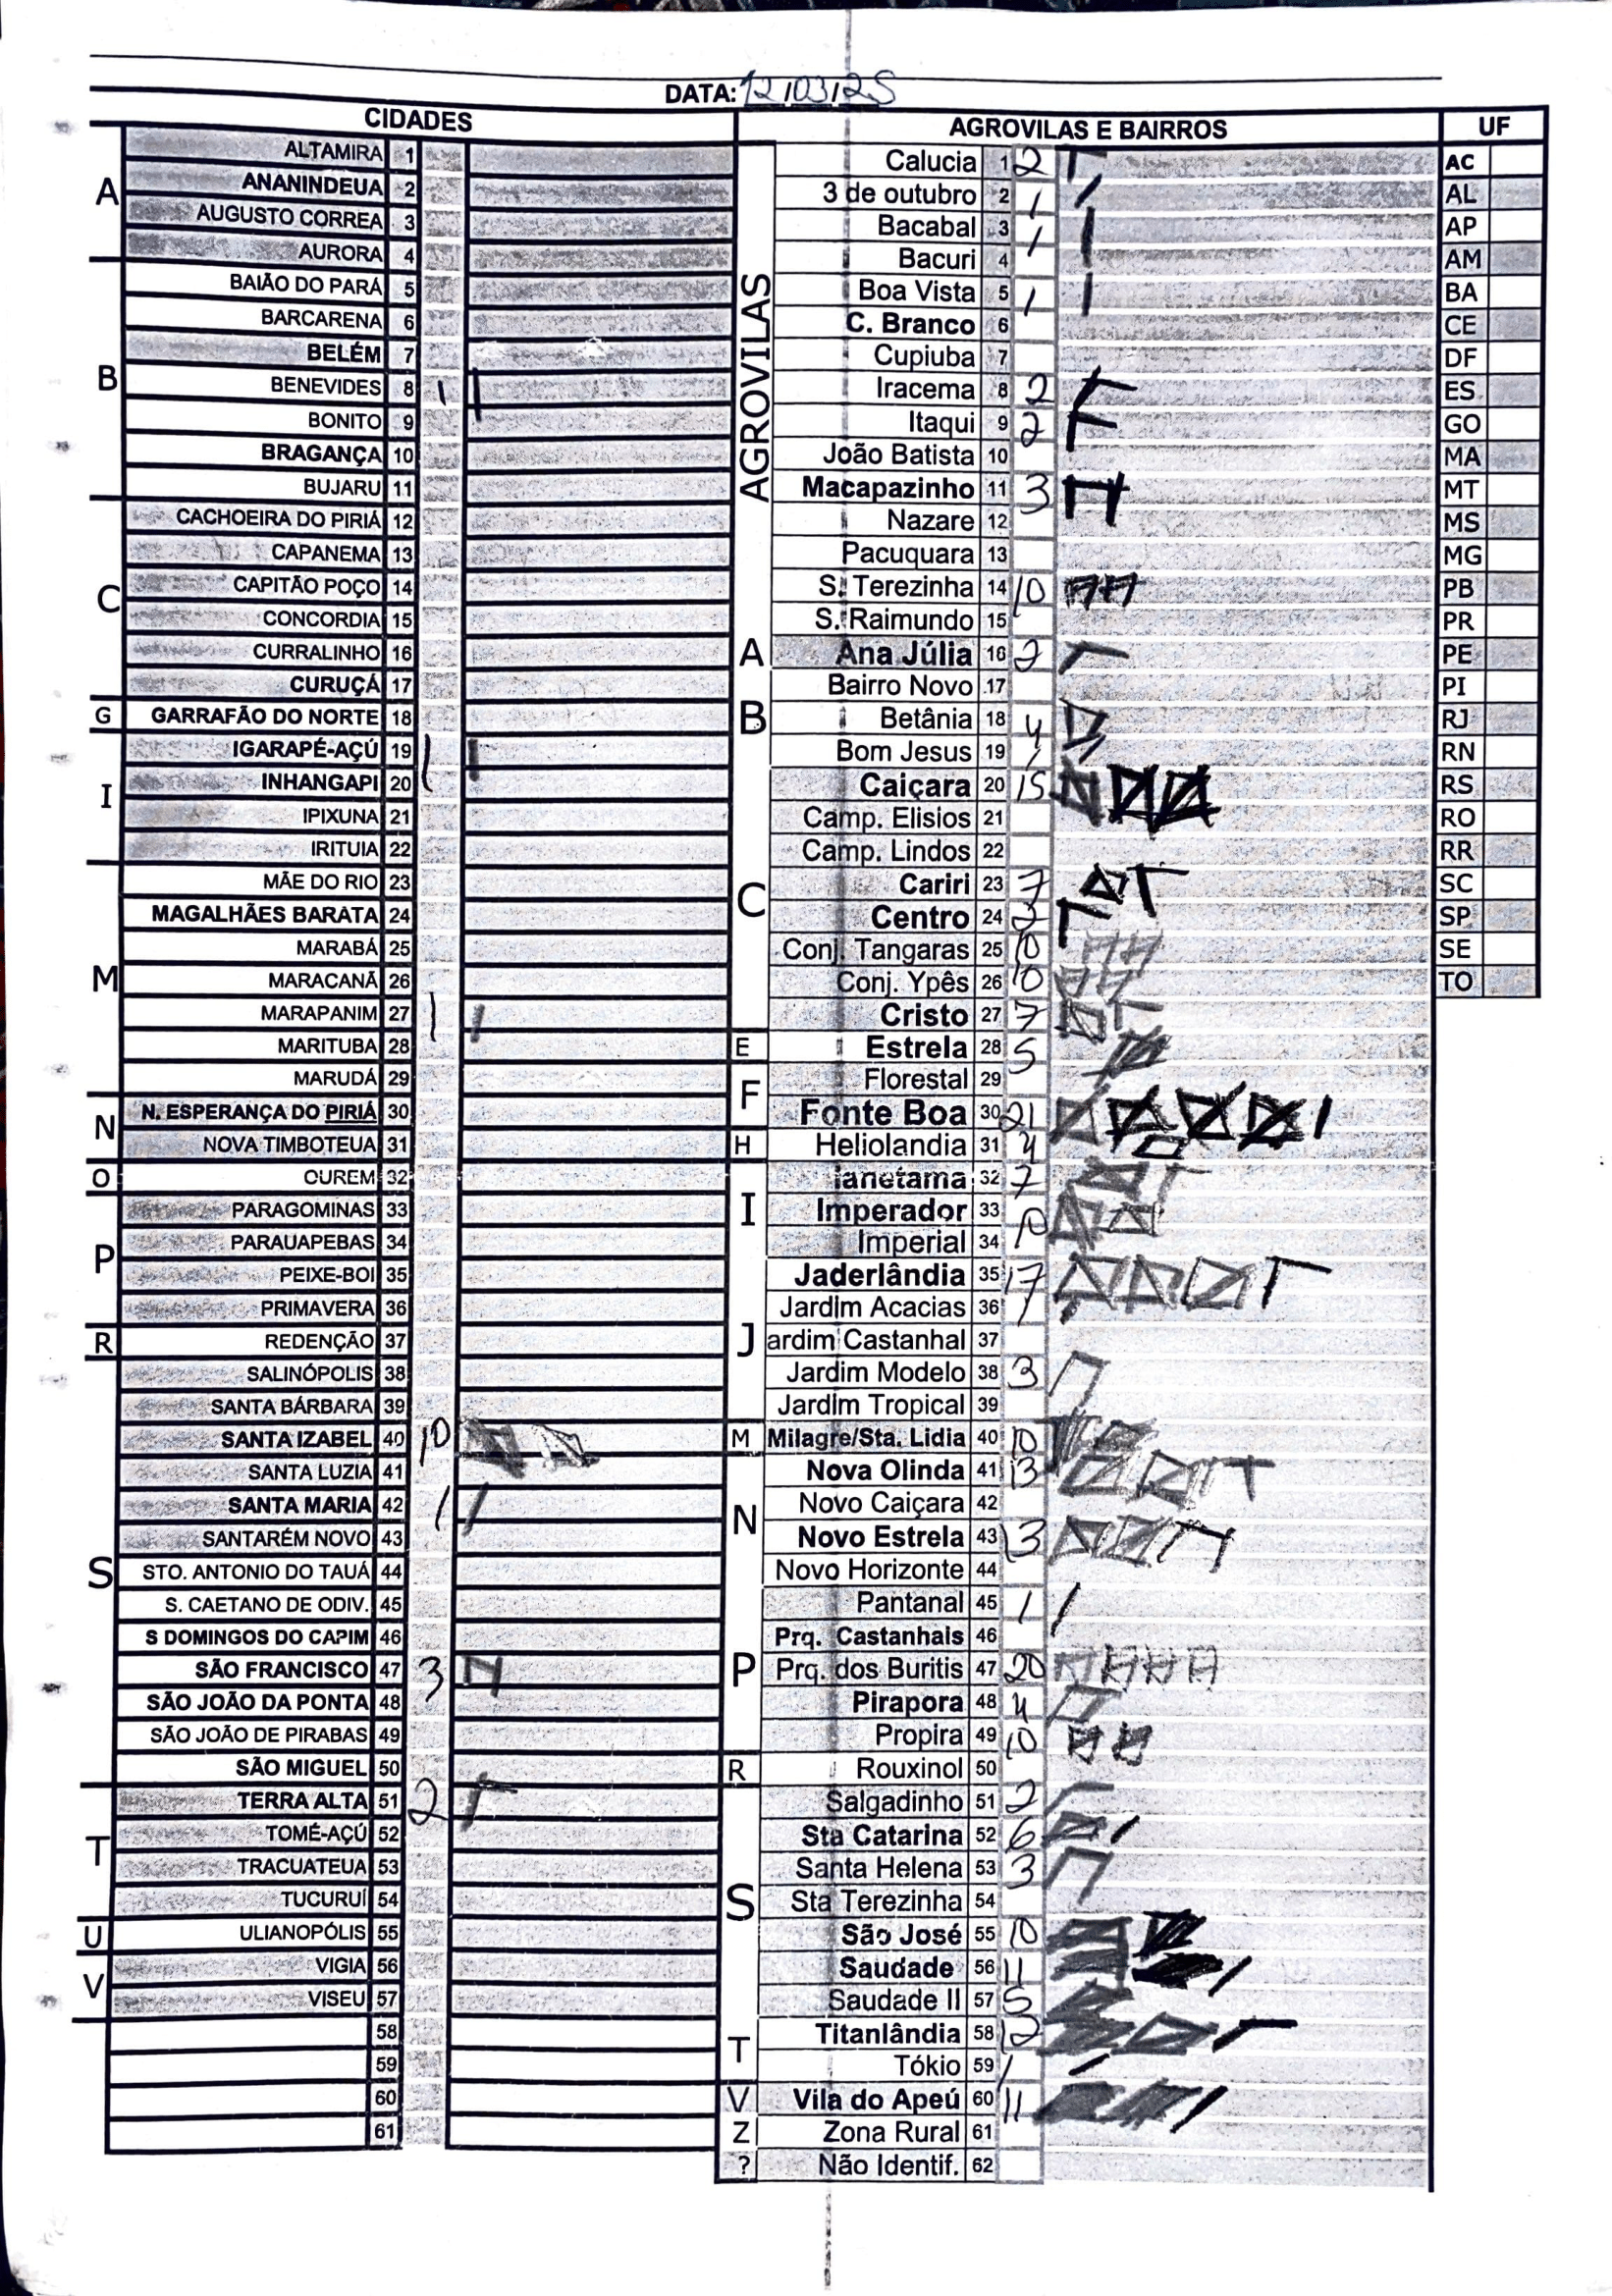 DATA: 12/03/25
CIDADES
A
ALTAMIRA 1
ANANINDEUA 2
AUGUSTO CORREA 3
AURORA 4
B
BAIÃO DO PARÁ 5
BARCARENA 6
BELÉM 7
BENEVIDES 8 1
BONITO 9
BRAGANÇA 10
BUJARU 11
C
CACHOEIRA DO PIRIÁ 12
CAPANEMA 13
CAPITÃO POÇO 14
CONCORDIA 15
CURRALINHO 16
CURUÇÁ 17
G
GARRAFÃO DO NORTE 18
I
IGARAPÉ-AÇÚ 19 1
INHANGAPI 20
IPIXUNA 21
IRITUIA 22
M
MÃE DO RIO 23
MAGALHÃES BARATA 24
MARABÁ 25
MARACANÃ 26
MARAPANIM 27 1
MARITUBA 28
MARUDÁ 29
N
N. ESPERANÇA DO PIRIÁ 30
NOVA TIMBOTEUA 31
O
OUREM 32
P
PARAGOMINAS 33
PARAUAPEBAS 34
PEIXE-BOI 35
PRIMAVERA 36
R
REDENÇÃO 37
S
SALINÓPOLIS 38
SANTA BÁRBARA 39
SANTA IZABEL 40 10
SANTA LUZIA 41
SANTA MARIA 42 1
SANTARÉM NOVO 43
STO. ANTONIO DO TAUÁ 44
S. CAETANO DE ODIV. 45
S DOMINGOS DO CAPIM 46
SÃO FRANCISCO 47 3
SÃO JOÃO DA PONTA 48
SÃO JOÃO DE PIRABAS 49
SÃO MIGUEL 50
T
TERRA ALTA 51 2
TOMÉ-AÇÚ 52
TRACUATEUA 53
TUCURUÍ 54
U
ULIANOPÓLIS 55
V
VIGIA 56
VISEU 57
58
59
60
61
AGROVILAS E BAIRROS
AGROVILAS
Calucia 1 2
3 de outubro 2 1
Bacabal 3 1
Bacuri 4
Boa Vista 5 1
C. Branco 6
Cupiuba 7
Iracema 8 2
Itaqui 9 2
João Batista 10
Macapazinho 11 3
Nazare 12
Pacuquara 13
S. Terezinha 14 10
S. Raimundo 15
A
Ana Júlia 16 2
B
Bairro Novo 17
Betânia 18 4
Bom Jesus 19 1
C
Caiçara 20 15
Camp. Elisios 21
Camp. Lindos 22
Cariri 23 7
Centro 24 2
Conj. Tangaras 25 10
Conj. Ypês 26 10
Cristo 27 7
E
Estrela 28 5
F
Florestal 29
Fonte Boa 30 21
H
Heliolandia 31 4
I
Ianetama 32 7
Imperador 33 10
Imperial 34
J
Jaderlândia 35 17
Jardim Acacias 36 1
ardim Castanhal 37
Jardim Modelo 38 3
Jardim Tropical 39
M
Milagre/Sta. Lidia 40 10
N
Nova Olinda 41 13
Novo Caiçara 42
Novo Estrela 43 13
Novo Horizonte 44
P
Pantanal 45 1
Prq. Castanhais 46
Prq. dos Buritis 47 20
Pirapora 48 4
Propira 49 10
R
Rouxinol 50
S
Salgadinho 51 2
Sta Catarina 52 6
Santa Helena 53 3
Sta Terezinha 54
São José 55 10
Saudade 56 11
Saudade II 57 5
T
Titanlândia 58 12
Tókio 59 1
V
Vila do Apeú 60 11
Z
Zona Rural 61
?
Não Identif. 62
UF
AC
AL
AP
AM
BA
CE
DF
ES
GO
MA
MT
MS
MG
PB
PR
PE
PI
RJ
RN
RS
RO
RR
SC
SP
SE
TO